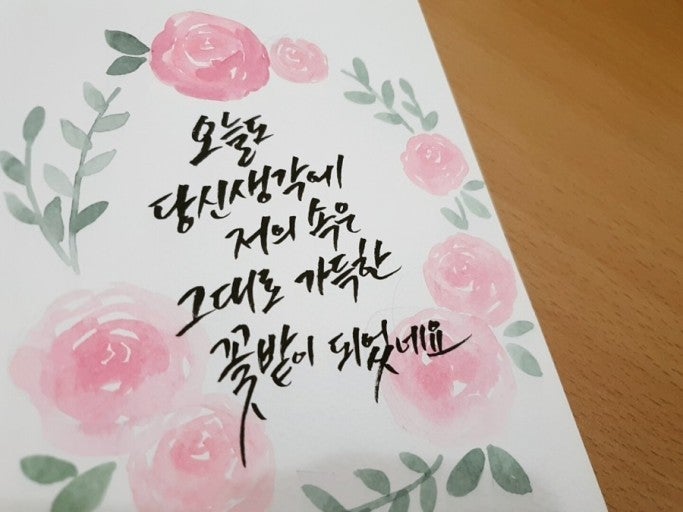 오늘도
당신생각에
저의 속은
그대로 가득한
꽃밭이 되었네요